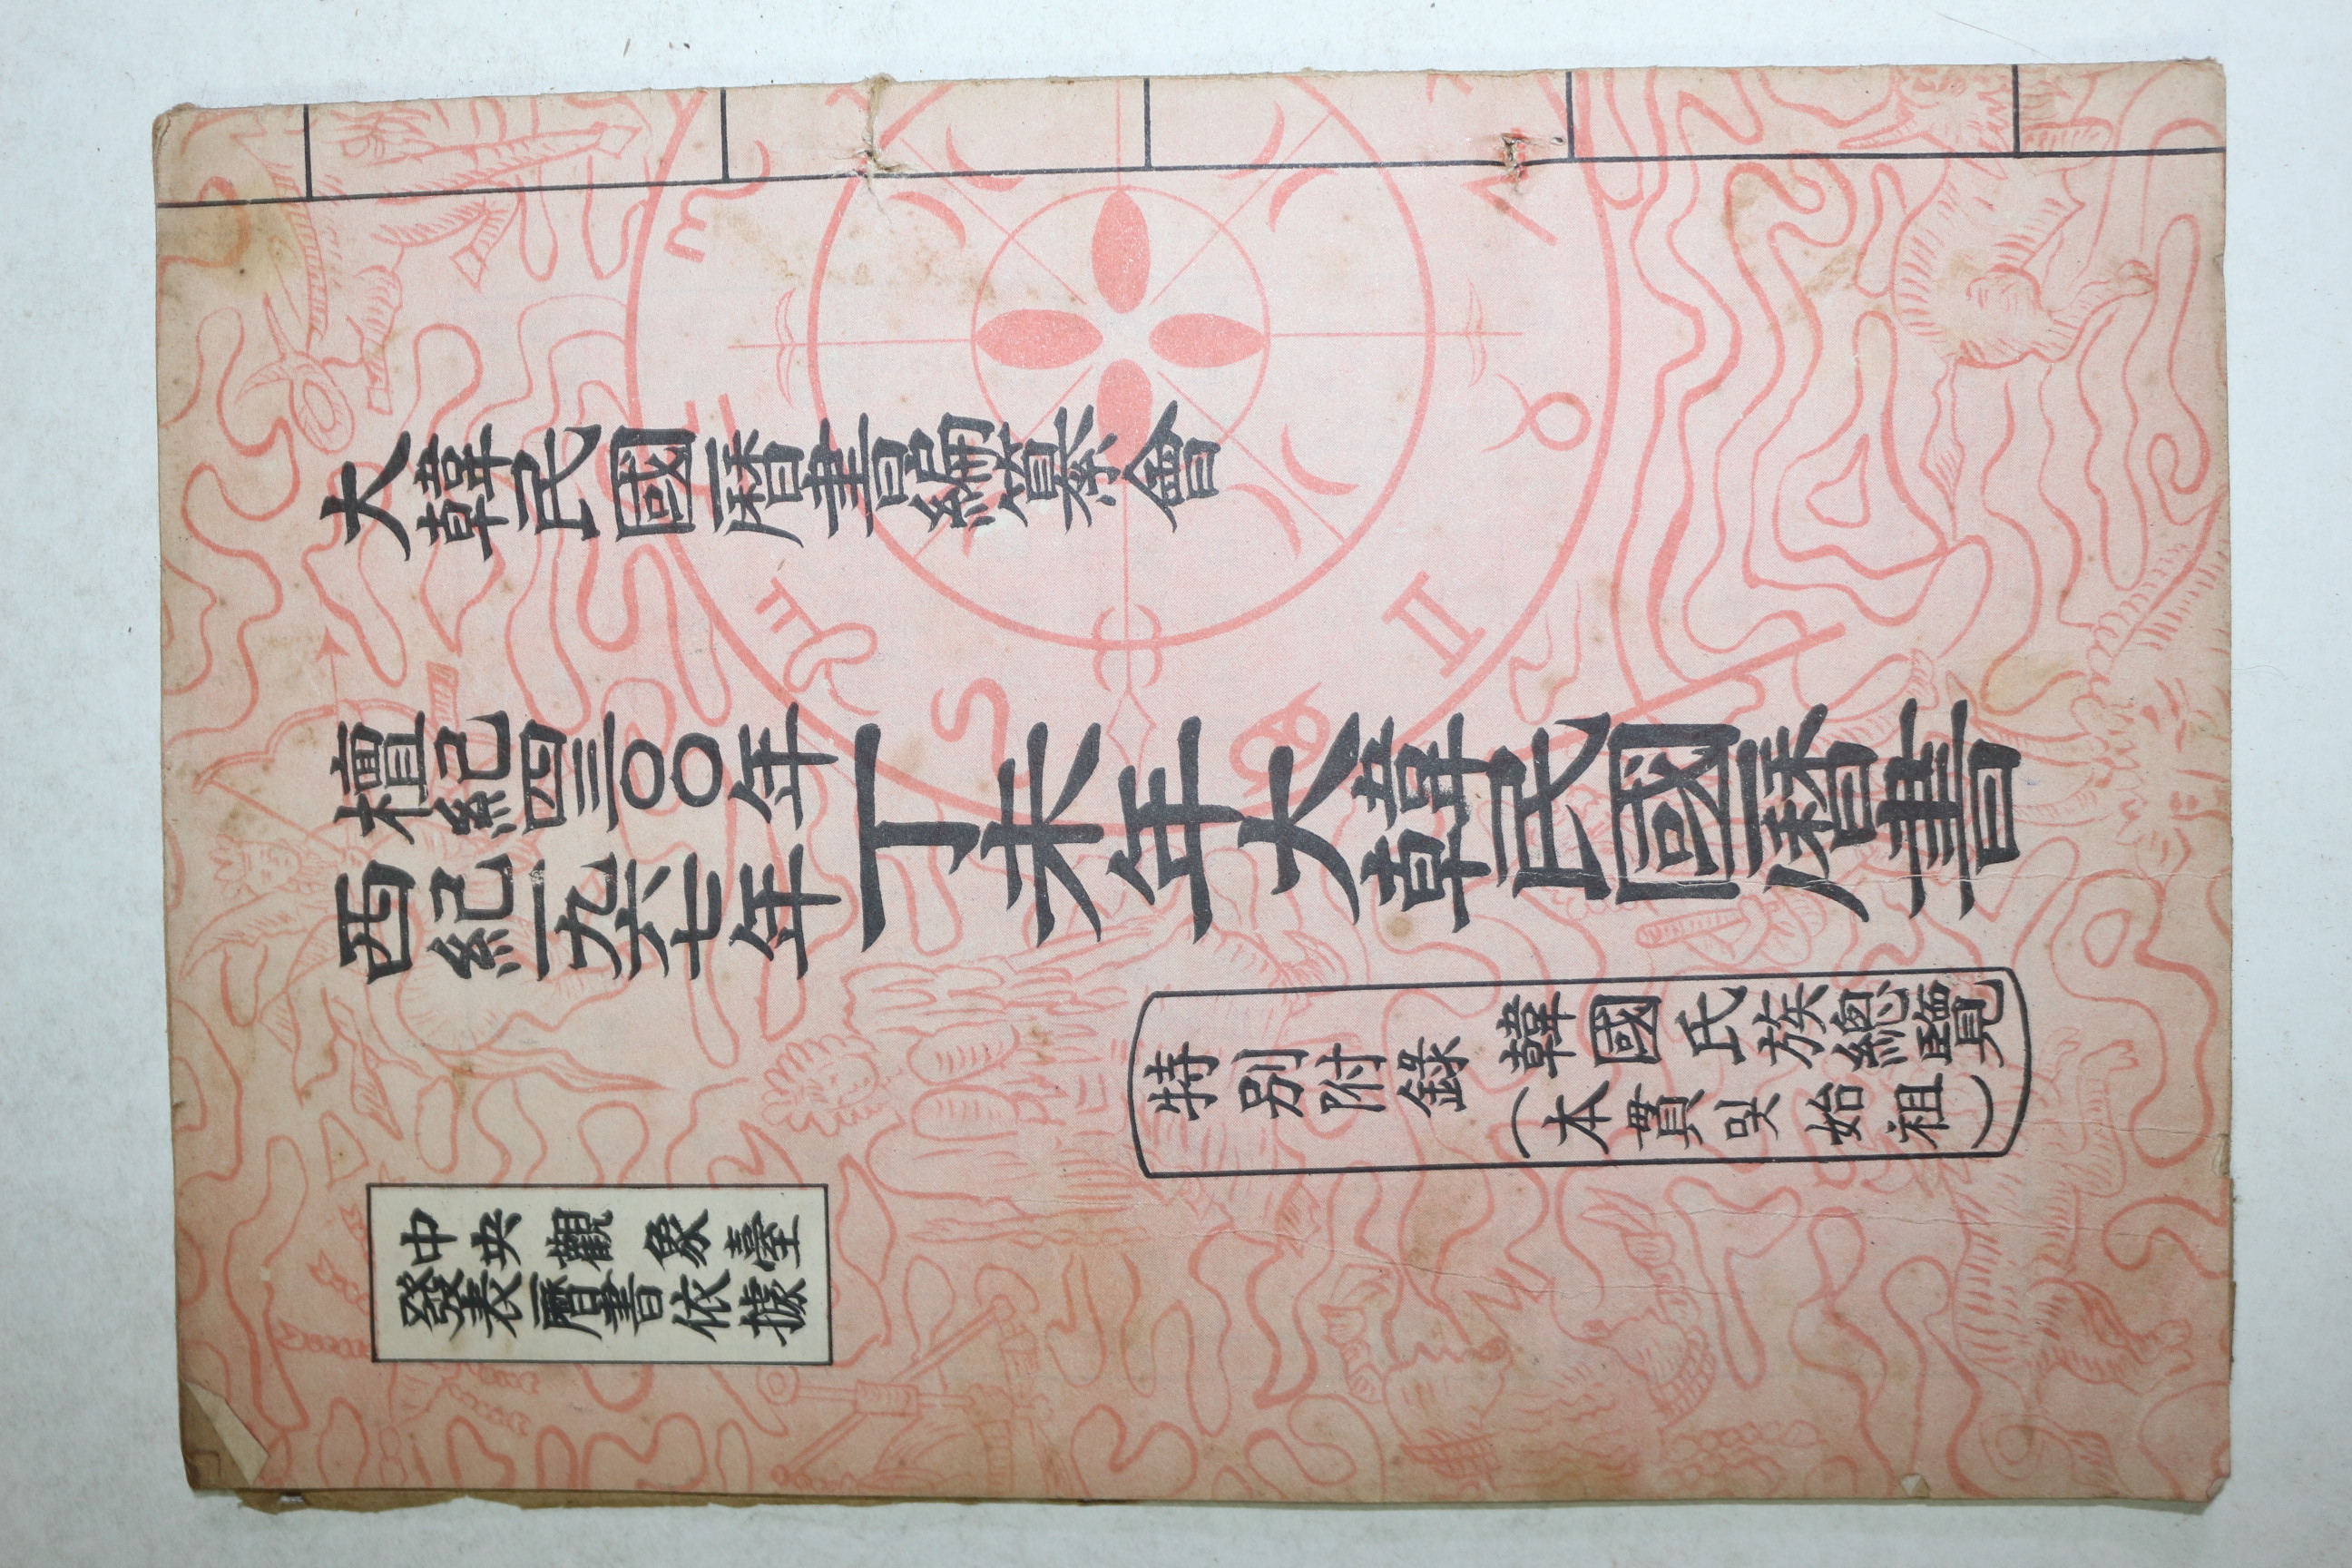 大韓民國曆書編纂會
檀紀四三〇〇年
西紀一九六七年
丁未年大韓民國曆書
特別附錄
韓國氏族總覽
(本貫및始祖)
中央觀象臺
發表曆書依據